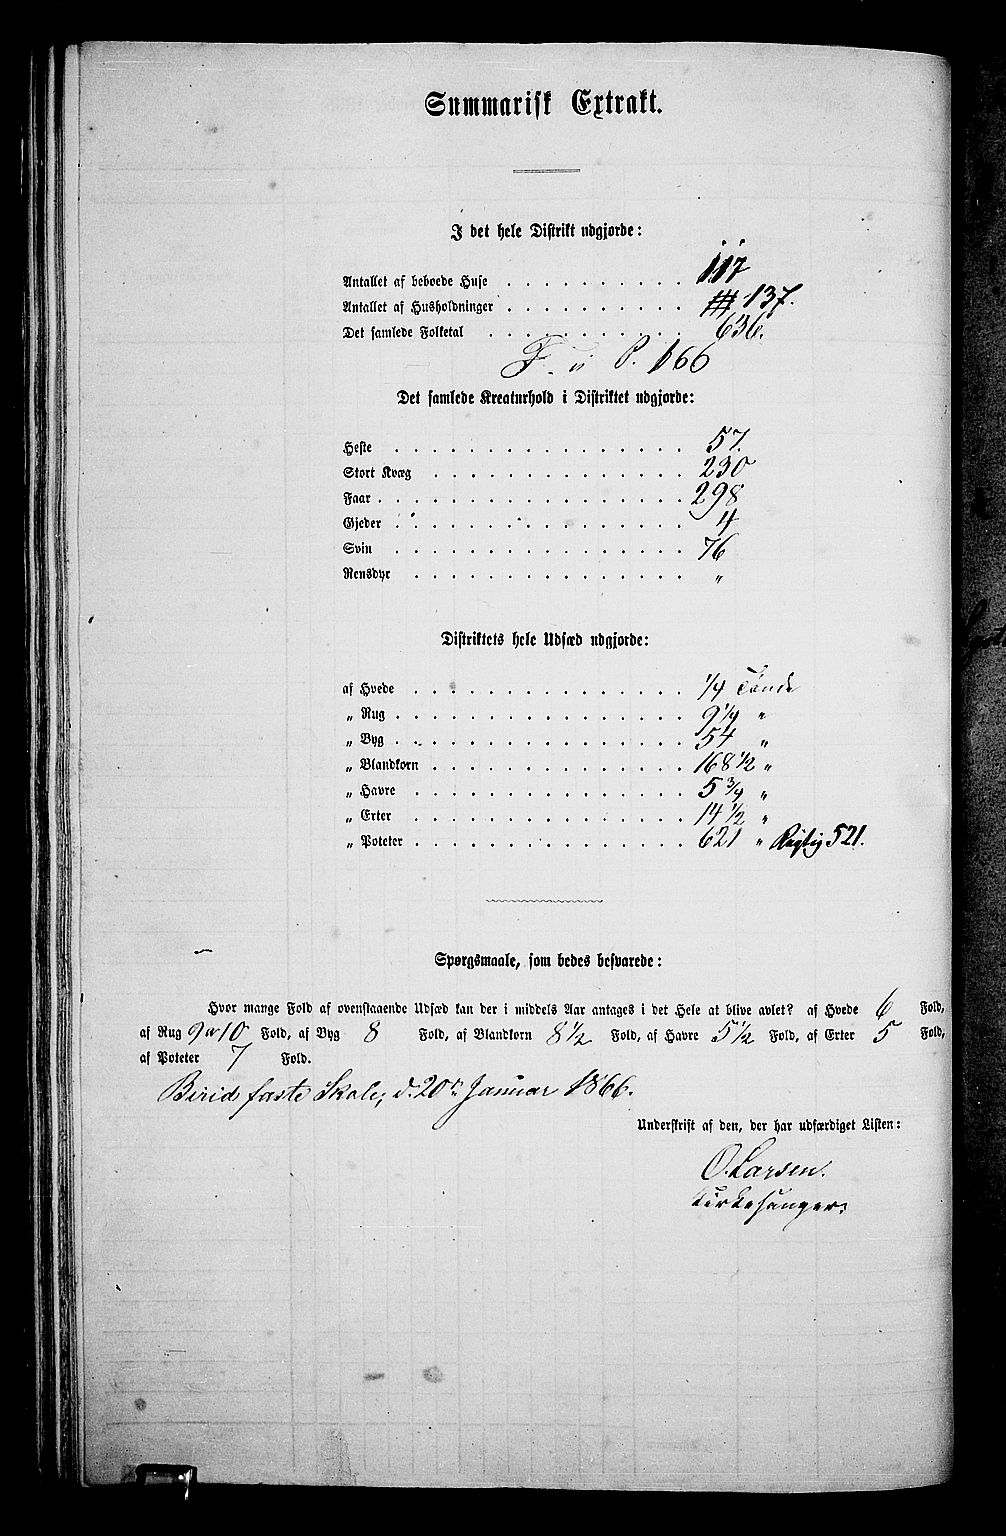 Summarisk Extrakt.
I det hele Distrikt udgjorde:
Antallet af beboede Huse . . . . . . . . . . 117
Antallet af Husholdninger . . . . . . . . . . 137.
Det samlede Folketal . . . . . . . . . . 636.
F. ii P. 166
Det samlede Kreaturhold i Distriktet udgjorde:
Heste . . . . . . . . . . . . . . . . 57.
Stort Kvæg . . . . . . . . . . . . . . 230
Faar . . . . . . . . . . . . . . . . . 298
Gjeder . . . . . . . . . . . . . . . . 4
Svin . . . . . . . . . . . . . . . . 76
Rensdyr . . . . . . . . . . . . . . . "
Distriktets hele Udsæd udgjorde:
af Hvede . . . . . . . . . . . . . . . 1/4 Tønde
„ Rug . . . . . . . . . . . . . . . . 9 1/4 "
„ Byg . . . . . . . . . . . . . . . . 54 "
„ Blandkorn . . . . . . . . . . . . . . 168 1/2 "
„ Havre . . . . . . . . . . . . . . . 5 3/4 "
„ Erter . . . . . . . . . . . . . . . 14 1/2 "
„ Poteter . . . . . . . . . . . . . . . 621 " Rigtig 521.
Spørgsmaale, som bedes besvarede:
Hvor mange Fold af ovenstaaende Udsæd kan der i middels Aar antages i det Hele at blive avlet? af Hvede 6 Fold,
af Rug 9 a 10 Fold, af Byg 8 Fold, af Blandkorn 8 1/2 Fold, af Havre 5 1/2 Fold, af Erter 5 Fold,
af Poteter 7 Fold.
Birid faste Skole, d. 20de Januar 1866.
Underskrift af den, der har udfærdiget Listen:
O. Larsen.
Kirkesanger.